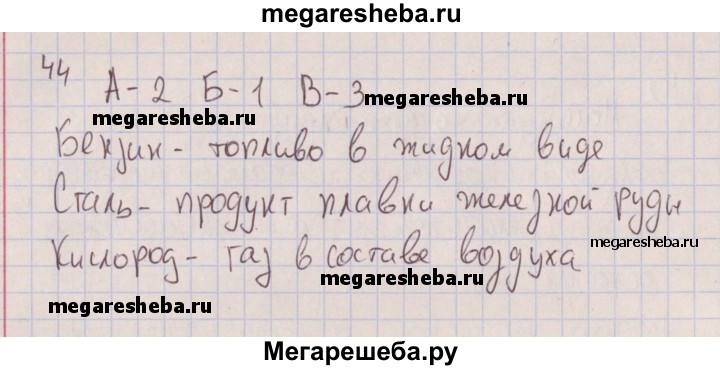 megaresheba.ru
44
А-2 Б-1 В-3
megaresheba.ru
megaresheba.ru
Бензин - топливо в жидком виде
Сталь - продукт плавки железной руды
megaresheba.ru
Кислород - газ в составе воздуха
megaresheba.ru
megaresheba.ru
Мегарешеба.ру